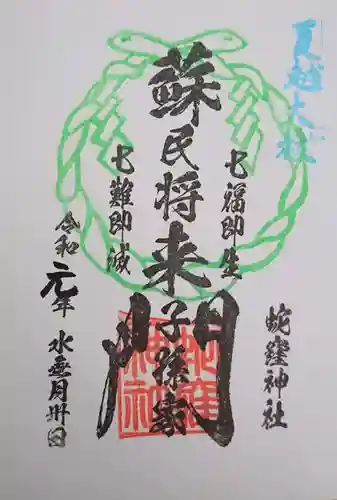 夏越大祓
七福即生
蘇民将来子孫家門
七難即滅
令和元年水無月卅日
蛇窪神社
蛇窪神社